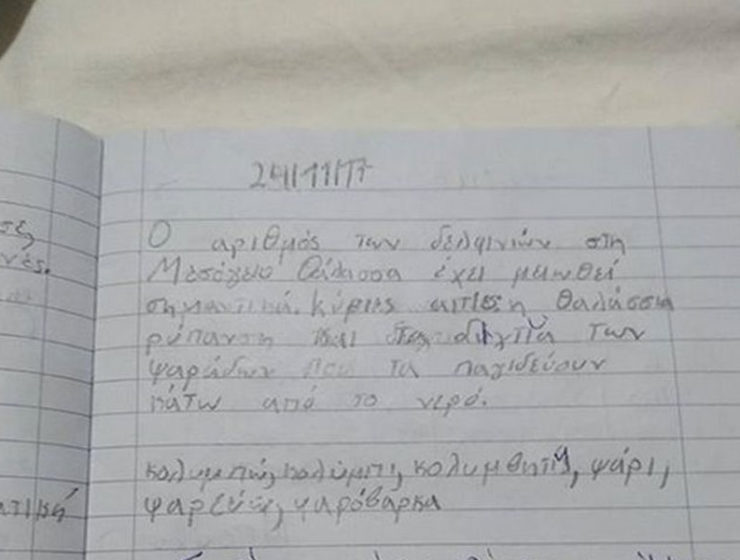 24/11/17
Ο αριθμός των δελφινιών στη
Μεσόγειο θάλασσα έχει μειωθεί
σημαντικά. Κύριες αιτίες η θαλάσσια
ρύπανση και τα δίχτυα των
ψαράδων που τα παγιδεύουν
κάτω από το νερό.
κολυμπώ, κολύμπι, κολυμβητής, ψάρι,
ψαρεύω, ψαρόβαρκα